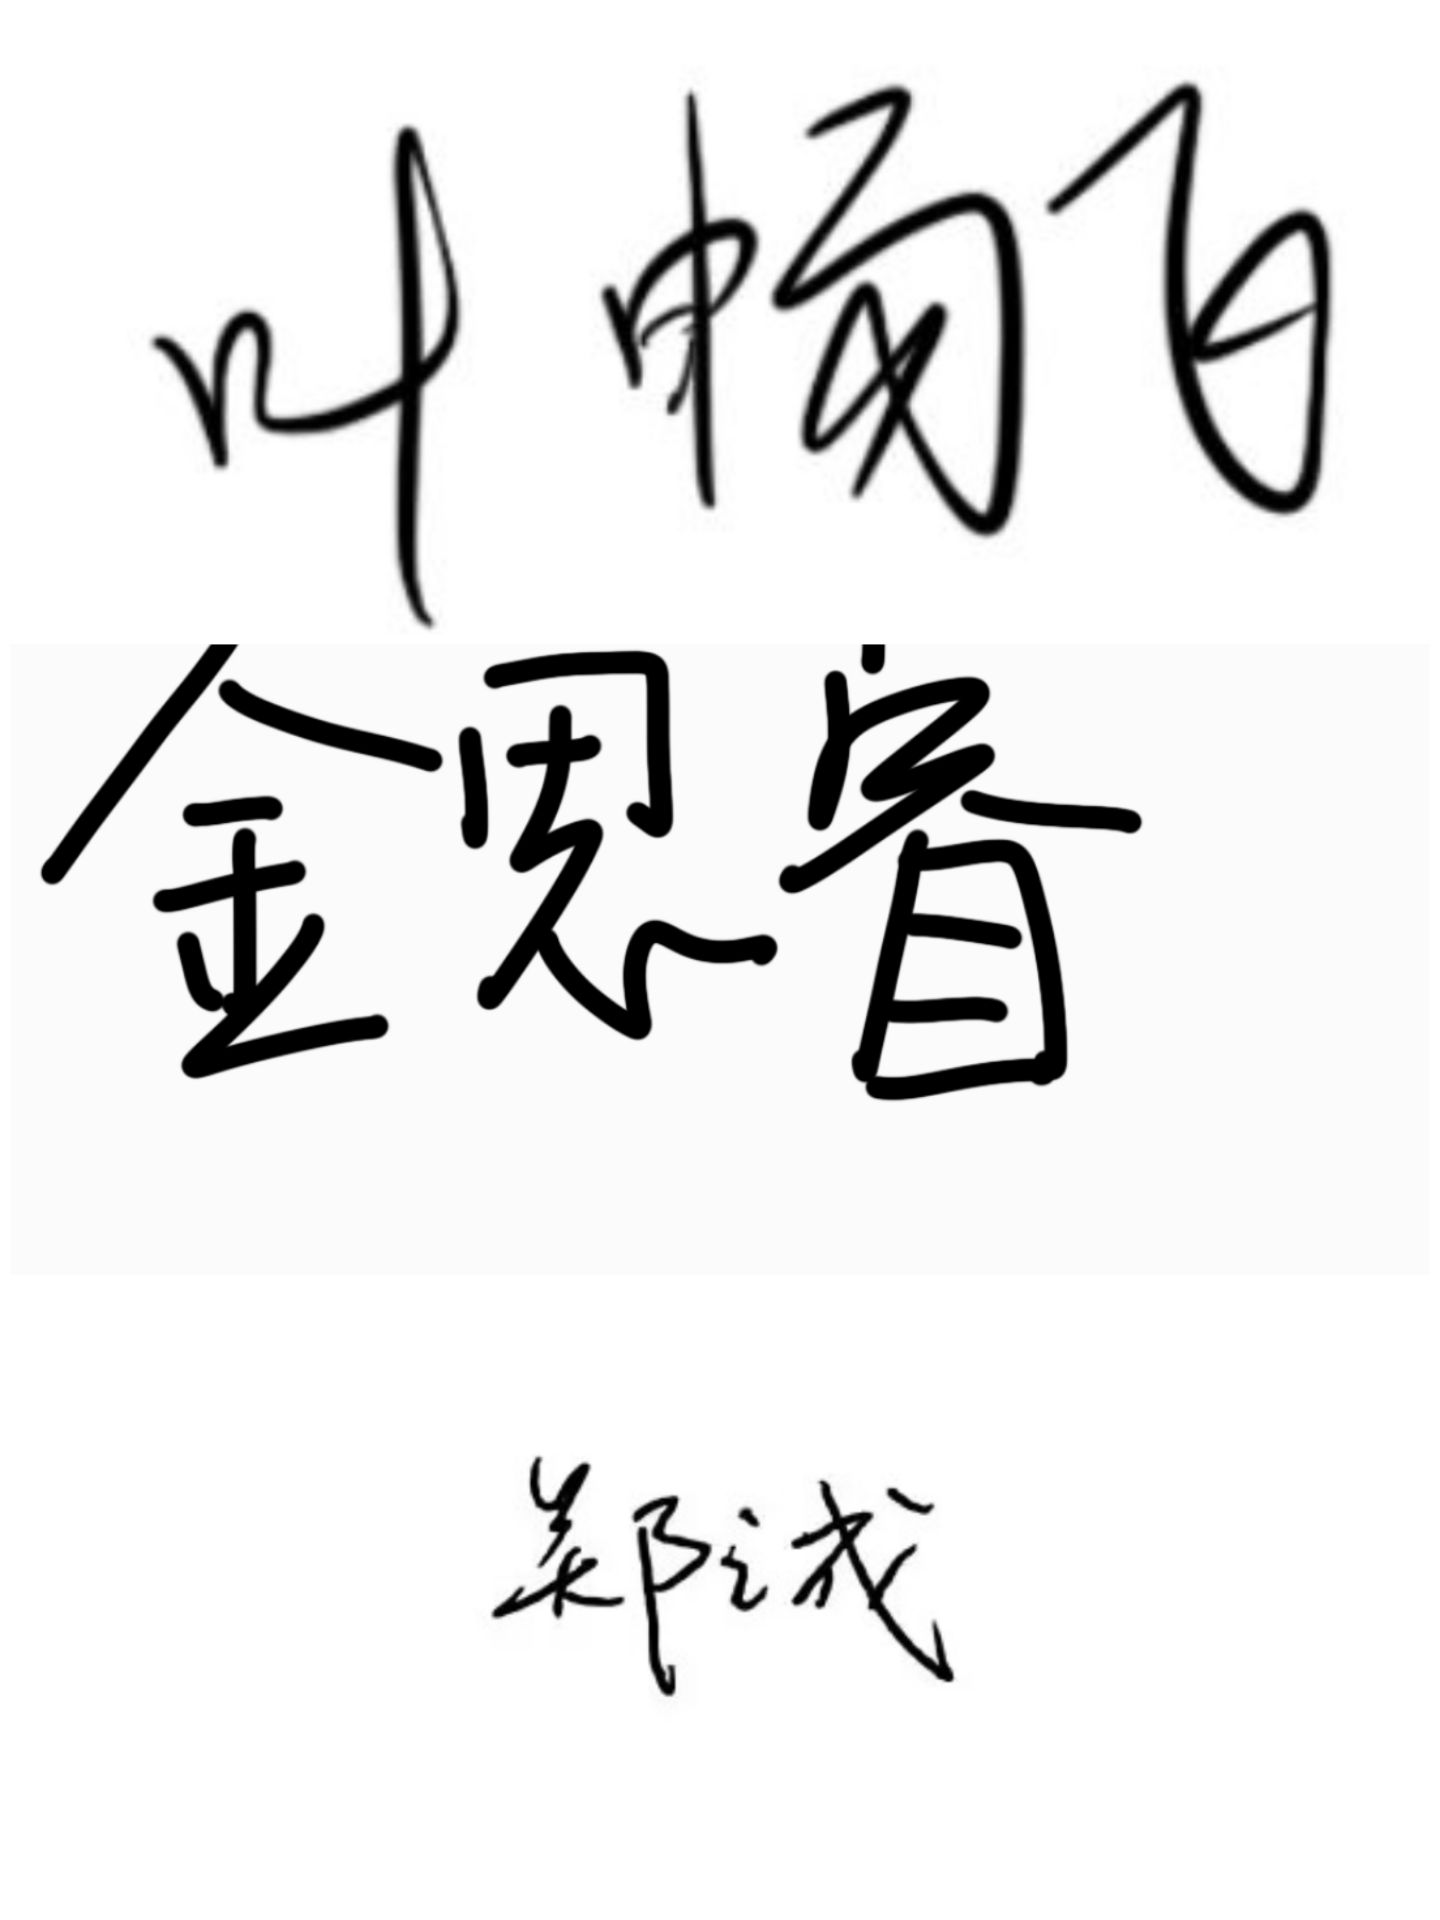 叶畅飞
金恩睿
郑诚